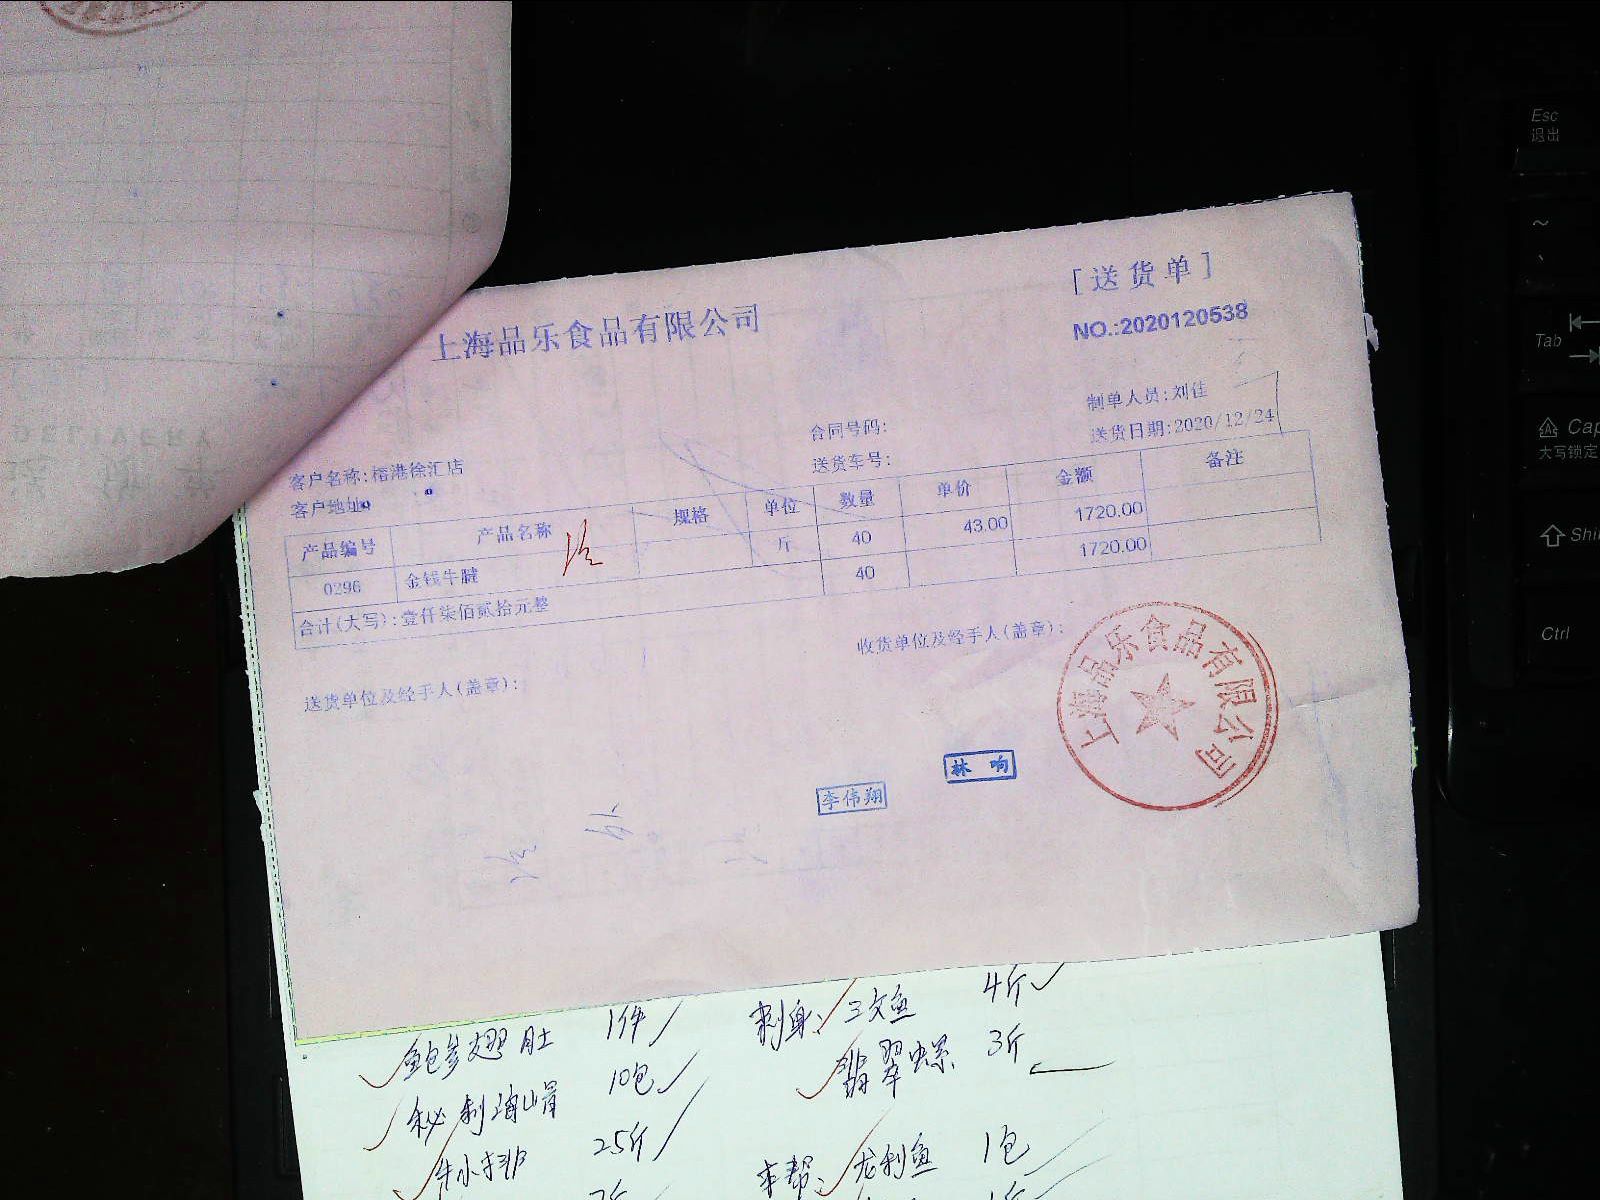 上海品乐食品有限公司
[送货单]
NO.:2020120538
制单人员:刘佳
合同号码:
送货日期:2020/12/24
客户名称:榕港徐汇店
送货车号:
客户地址
产品编号 产品名称 规格 单位 数量 单价 金额 备注
0296 金钱牛腱 斤 40 43.00 1720.00
合计(大写):壹仟柒佰贰拾元整 40 1720.00
送货单位及经手人(盖章):
收货单位及经手人(盖章):
上海品乐食品有限公司
林响
李伟翔
鲍参翅肚 1件
刺身: 三文鱼 4斤
10包
翡翠螺 3斤
25斤
本帮: 龙利鱼 1包
DELIVERY
Esc
退出
~
Tab
Cap
大写锁定
Shi
Ctrl